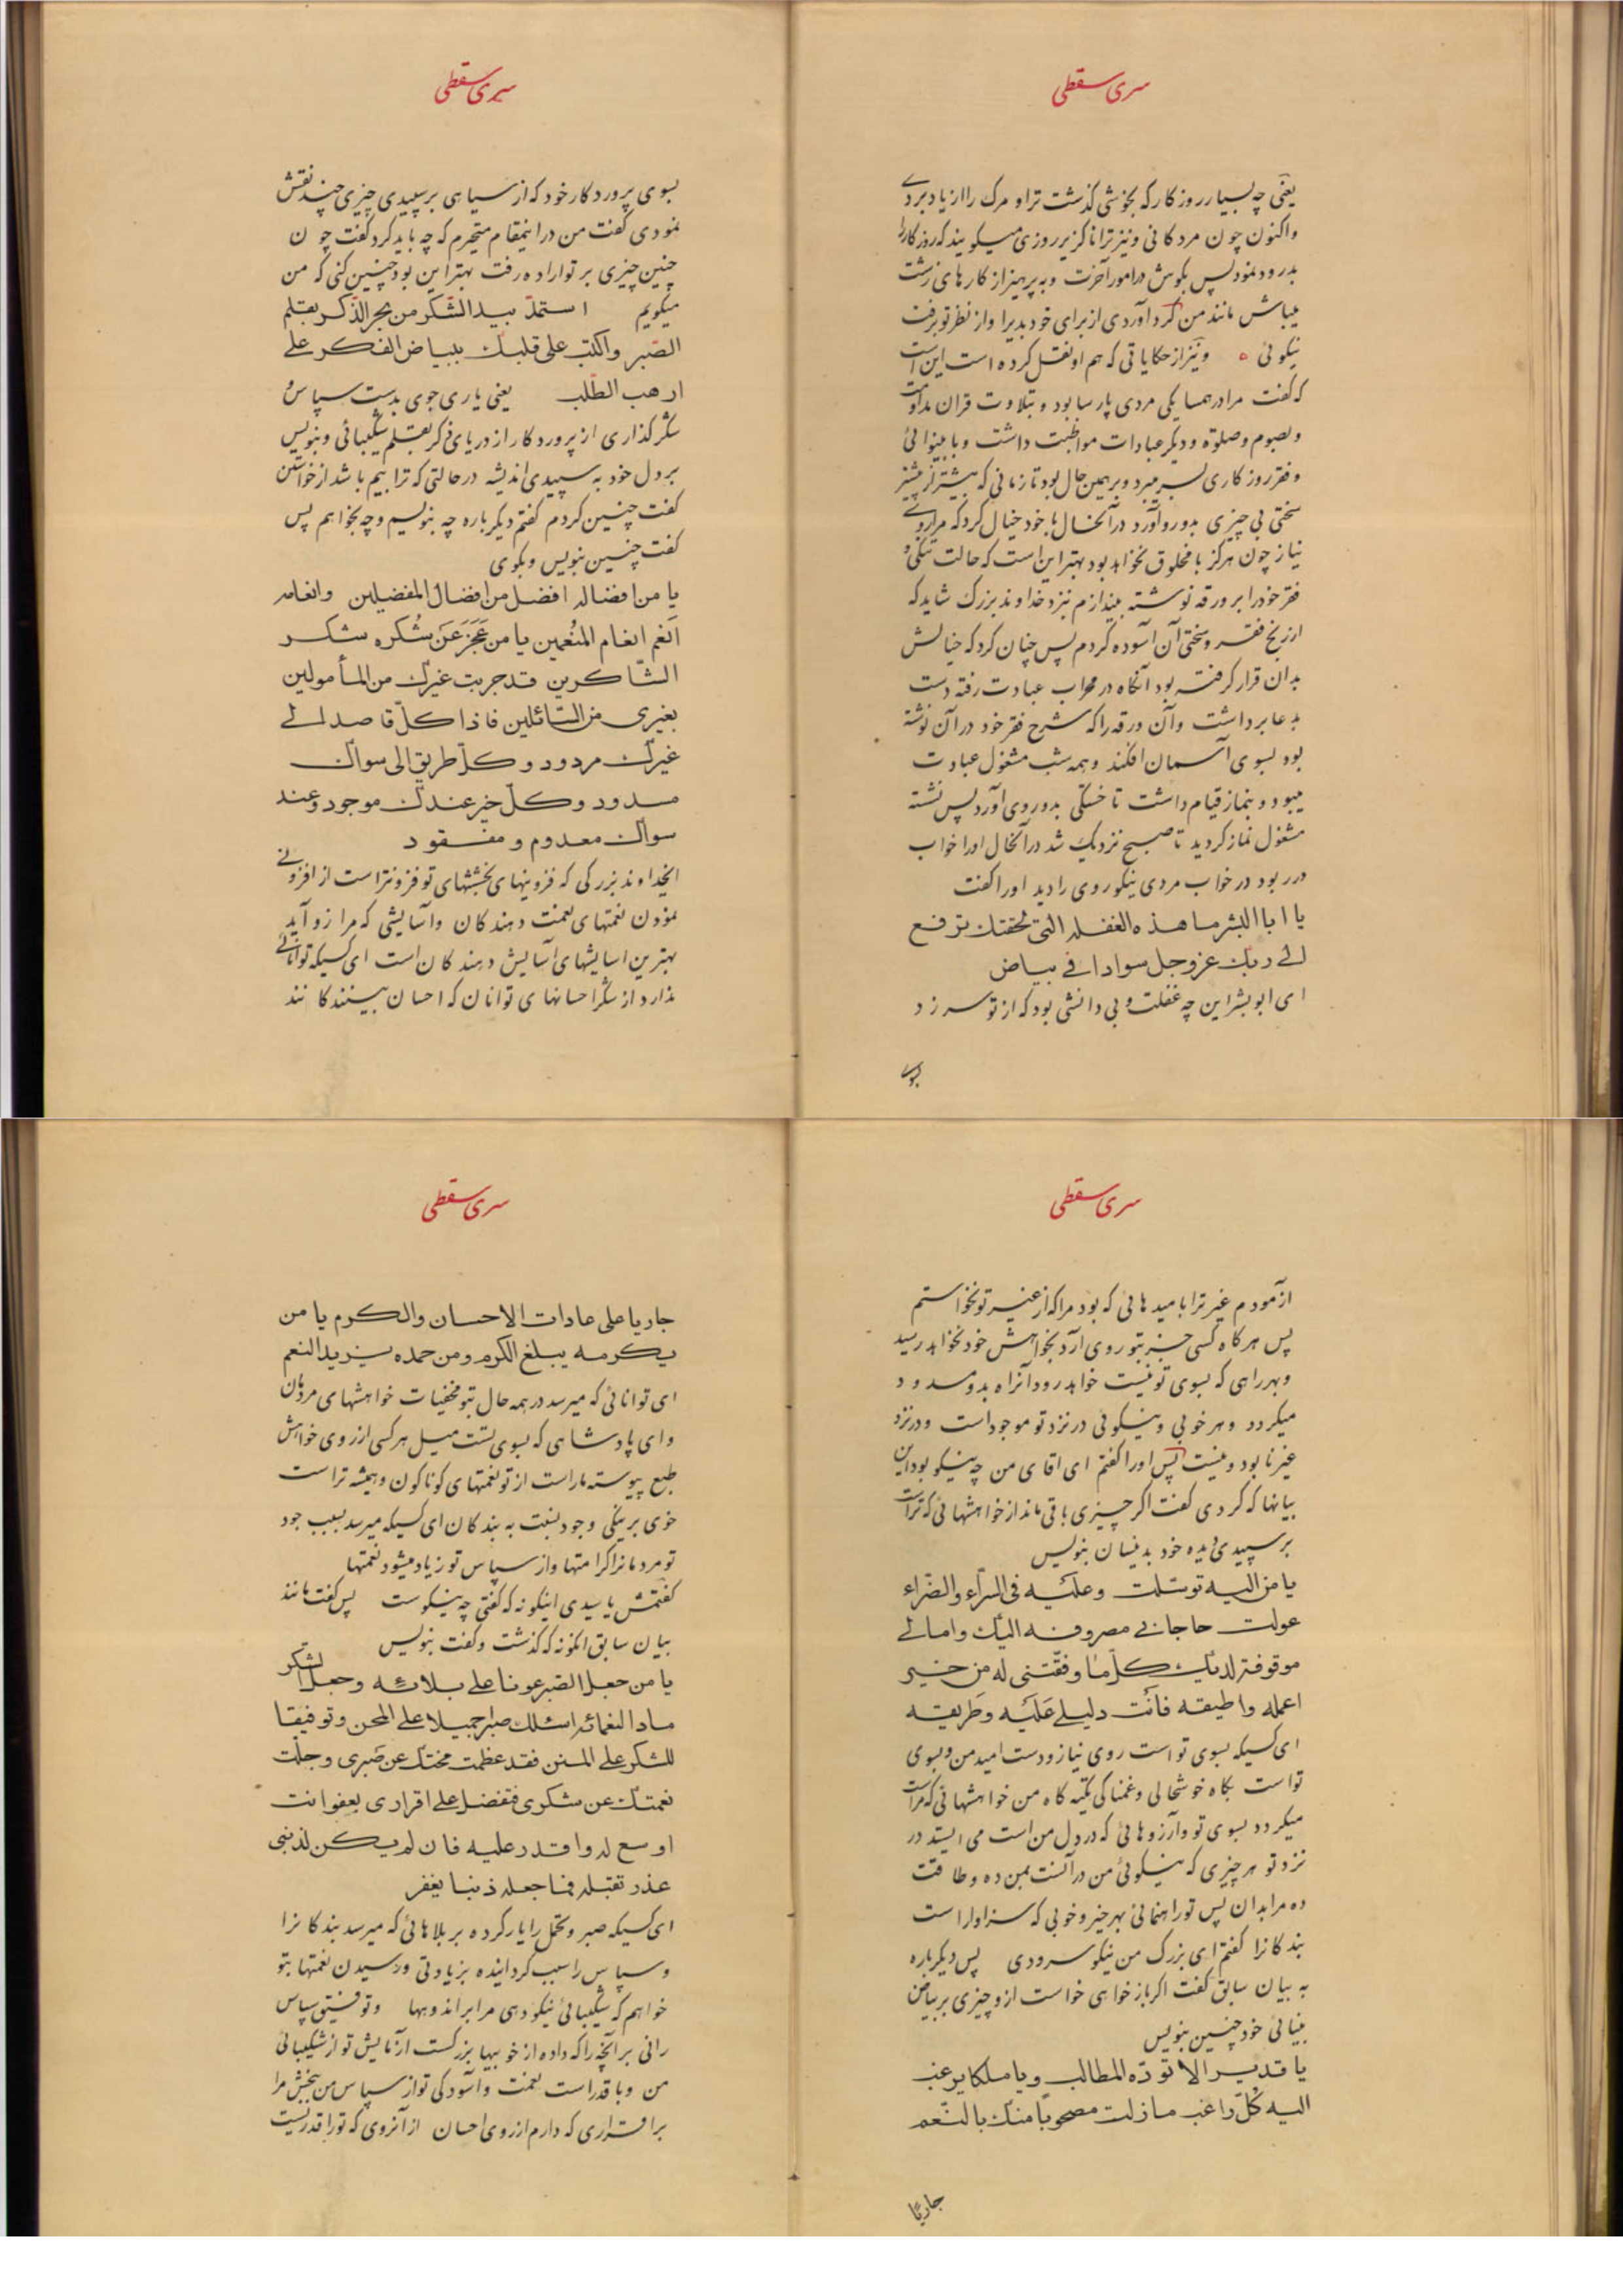 سری سقطی
یعنی چه بسیار روزکار که بخوشی کذشت ترا و مرک را از یاد بردے
واکنون چون مردکانی و نیز ترا ناکزیر روزی میکویند که روزکار را
بدرود نمود پس بکوش در امور آخرت و به پرهیز از کارهای زشت
میباش مانند من کرد آوردی از برای خود بدیرا و از نظر تو برفت
نیکوئی ه ونیز از حکایاتی که هم او نقل کرده است این است
که کفت مرا در همسایکی مردی پارسا بود و بتلاوت قران مداومت
و بصوم و صلوة و دیکر عبادات مواظبت داشت و با بینوائی
و فقر روزکاری بسر میبرد و بر همین حال بود تا زمانی که بیشتر از پیشتر
سختی بی چیزی بدو رو آورد در آنحال با خود خیال کرد که مرا روے
نیاز چون هرکز با مخلوق نخواهد بود بهتر این است که حالت تنکی و
فقر خود را بر ورقه نوشته بیندازم نزد خداوند بزرک شاید که
از رنج فقر و سختی آن آسوده کردم پس چنان کرد که خیالش
بدان قرار کرفته بود آنکاه در محراب عبادت رفته دست
بدعا برداشت وآن ورقه را که شرح فقر خود در آن نوشته
بود بسوی آسمان افکند و همه شب مشغول عبادت
میبود و بنماز قیام داشت تا خستکی بدو روی آورد پس نشسته
مشغول نماز کردید تا صبح نزدیک شد در آنحال او را خواب
در ربود در خواب مردی نیکو روی را دید او را کفت
یا ابا البشر ما هذه الغفله التی لحقتک ترفع
الی ربک عزوجل سوادا فی بیاض
ای ابو بشر این چه غفلت و بی دانشی بود که از تو سر زد
بسوی
سری سقطی
بسوی پروردکار خود که از سیاهی بر سپیدی چیزی چند نقش
نمودی کفت من در اینمقام متحیرم که چه باید کرد کفت چون
چنین چیزی بر تو اراده رفت بهتر این بود چنین کنی که من
میکویم استمدّ بید الشّکر من بحر الذّکر بقلم
الصّبر واکتب علی قلبک ببیاض الفکر علی
ارهب الطّلب یعنی یاری جوی بدست سپاس و
شکر کذاری از پروردکار از دریای ذکر بقلم شکیبائی و بنویس
بر دل خود به سپیدی اندیشه در حالتی که ترا بیم باشد از خواستن
کفت چنین کردم کفتم دیکر باره چه بنویسم و چه بخواهم پس
کفت چنین بنویس و بکوی
یا من افضاله افضل من افضال المفضلین وانعامه
انعم انعام المنُعمین یا من عَجَزَ عَن شُکره شکر
الشّاکرین قد جربت غیرک من المأمولین
بغیری من السّائلین فاذا کلّ قاصد الی
غیرک مردود و کلّ طریق الی سواک
مسدود و کلّ خیر عندک موجود و عند
سواک معدوم و مفقود
ایخداوند بزرکی که فزونیهای بخششهای تو فزونتر است از افزونی
نمودن نعمتهای نعمت دهندکان وآسایشی که مرا زو آید
بهترین اسایشهای آسایش دهندکان است ای کسیکه توانائی
ندارد از شکر احسانهای توانان که احسان بینندکانند
سری سقطی
از آمودم غیر ترا بامیدهائی که بود مرا که از غیر تو نخواستم
پس هرکاه کسی جز بتو روی آرد بخواهش خود نخواهد رسید
و بهر راهی که بسوی تو نیست خواهد رود آنراه بدو مسدود
میکردد و هر خوبی و نیکوئی در نزد تو موجود است و در نزد
غیر نابود و نیست پس او را کفتم ای اقای من چه نیکو بود این
بیانها که کردی کفت اکر چیزی باقی ماند از خواهشهائی که تراست
بر سپیدی دیده خود بدینسان بنویس
یا من الیه توسّلت وعلَیه فی السّراء والضّراء
عولت حاجاتی مصروفه الیک وامالی
موقوفة لدیک کلّما وفّقتنی له من خیر
اعمله واطیقه فانت دلیلی علَیه وطَریقه
ای کسیکه بسوی تو است روی نیاز و دست امید من و بسوی
تو است بکاه خوشحالی و غمناکی تکیه کاه من خواهشهائی که مراست
میکردد بسوی تو وآرزوهائی که در دل من است می ایستد در
نزد تو هر چیزی که نیکوئی من در آنست بمن ده و طاقت
ده مرا بدان پس تو راهنمائی بهر خیر و خوبی که سزاوار است
بندکانرا کفتم ای بزرک من نیکو سرودی پس دیکر باره
به بیان سابق کفت اکر باز خواهی خواست ازو چیزی بر بیاض
بینائی خود چنین بنویس
یا قدیر الا تؤده المطالب و یا ملکا یرغب
الیه کُلّ راغب ما زلت مصحوباً منک بالنّعم
جاریًا
سری سقطی
جاریا علی عادات الاحسان والکرم یا من
بکرمه یبلغ الکرم ومن حمده یزید النعم
ای توانائی که میرسد در همه حال بتو مخفیات خواهشهای مردمان
و ای پادشاهی که بسوی تست میل هر کسی از روی خواهش
طبع پیوسته ما راست از تو نعمتهای کوناکون و همیشه تراست
خوی بر نیکی وجود نسبت به بندکان ای کسیکه میرسد بسبب جود
تو مردمانرا کرامتها و از سپاس تو زیاد میشود نعمتها
کفتمش یا سیدی اینکونه که کفتی چه نیکوست پس کفت مانند
بیان سابق انکونه که کذشت و کفت بنویس
یا من جعل الصّبر عونا علی بلائه وجعل الشکر
مادا لنعمائه اسئلک صبرا جمیلا علی المحن وتوفیقا
للشکر علی المنن فقد عظمت محنتک عن صَبری وجلّت
نعمتک عن شکری فتفضل علی اقراری بعفو انت
اوسع له واقدر علیه فان لم یکن لذنبی
عذر تقبله فاجعله ذنبا یغفر
ای کسیکه صبر و تحمل را یار کرده بر بلاهائی که میرسد بندکانرا
و سپاس را سبب کردانیده بزیادتی و رسیدن نعمتها بتو
خواهم که شکیبائی نیکو دهی مرا بر اندوهها و توفیق سپاس
رانی بر آنچه را که داده از خوبیها بزرکست آزمایش تو از شکیبائی
من و با قدر است نعمت وآسودکی تو از سپاس من ببخش مرا
بر اقراری که دارم از روی احسان از آنروی که تو را قدرتیست